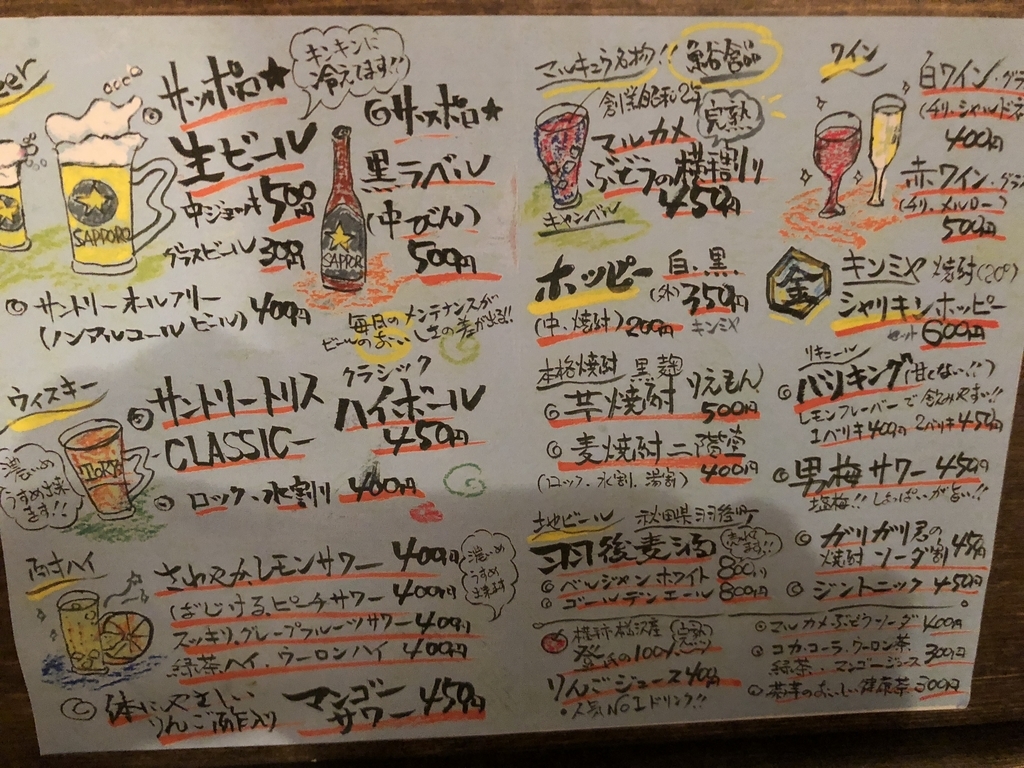 eer
キンキンに
冷えてます!!
サッポロ★
生ビール
中ジョッキ 500円
グラスビール 300円
SAPPORO
サッポロ★
黒ラベル
(中びん)
500円
SAPPOR
サントリーオールフリー
(ノンアルコールビール) 400円
毎日のメンテナンスが
ビールのおいしさの差が出る!!
ウィスキー
濃いめ
うすめ出来
ます!!
TORYS
サントリートリス
CLASSIC
クラシック
ハイボール
450円
ロック、水割り 400円
酎ハイ
さわやかレモンサワー 400円
はじけるピーチサワー 400円
スッキリグレープフルーツサワー 400円
緑茶ハイ、ウーロンハイ 400円
濃いめ
うすめ
出来ます
体にやさしい
りんご酢入り
マンゴーサワー 450円
マルキュウ名物!!
創業昭和2年
完熟
マルカメ
ぶどうの横割り
450円
キャンベル
ホッピー 白、黒
(外) 350円
(中、焼酎) 200円 キンミヤ
本格焼酎 黒麹
芋焼酎 りえもん
500円
麦焼酎 二階堂
(ロック、水割、湯割) 400円
地ビール 秋田県羽後町
羽後麦酒
ベルジャンホワイト 800円
ゴールデンエール 800円
完熟
100%
りんごジュース
・人気NO1ドリンク!!
ワイン
白ワイン・グラ
(チリ・シャルドネ
400円
赤ワイン、グラ
(チリ、メルロー)
500円
金
キンミヤ焼酎(20°)
シャリキンホッピー
セット 600円
リキュール
バリキング (甘くない!!)
レモンフレーバーで飲みやすい!!
1バリキ400円 2バリキ450円
男梅サワー 450円
塩梅!! しょっぱいが旨い!!
ガリガリ君の
焼酎ソーダ割 450円
ジントニック 450円
マルカメぶどうソーダ 400円
コカ・コーラ、ウーロン茶
緑茶、マンゴージュース 300円
健康茶 300円